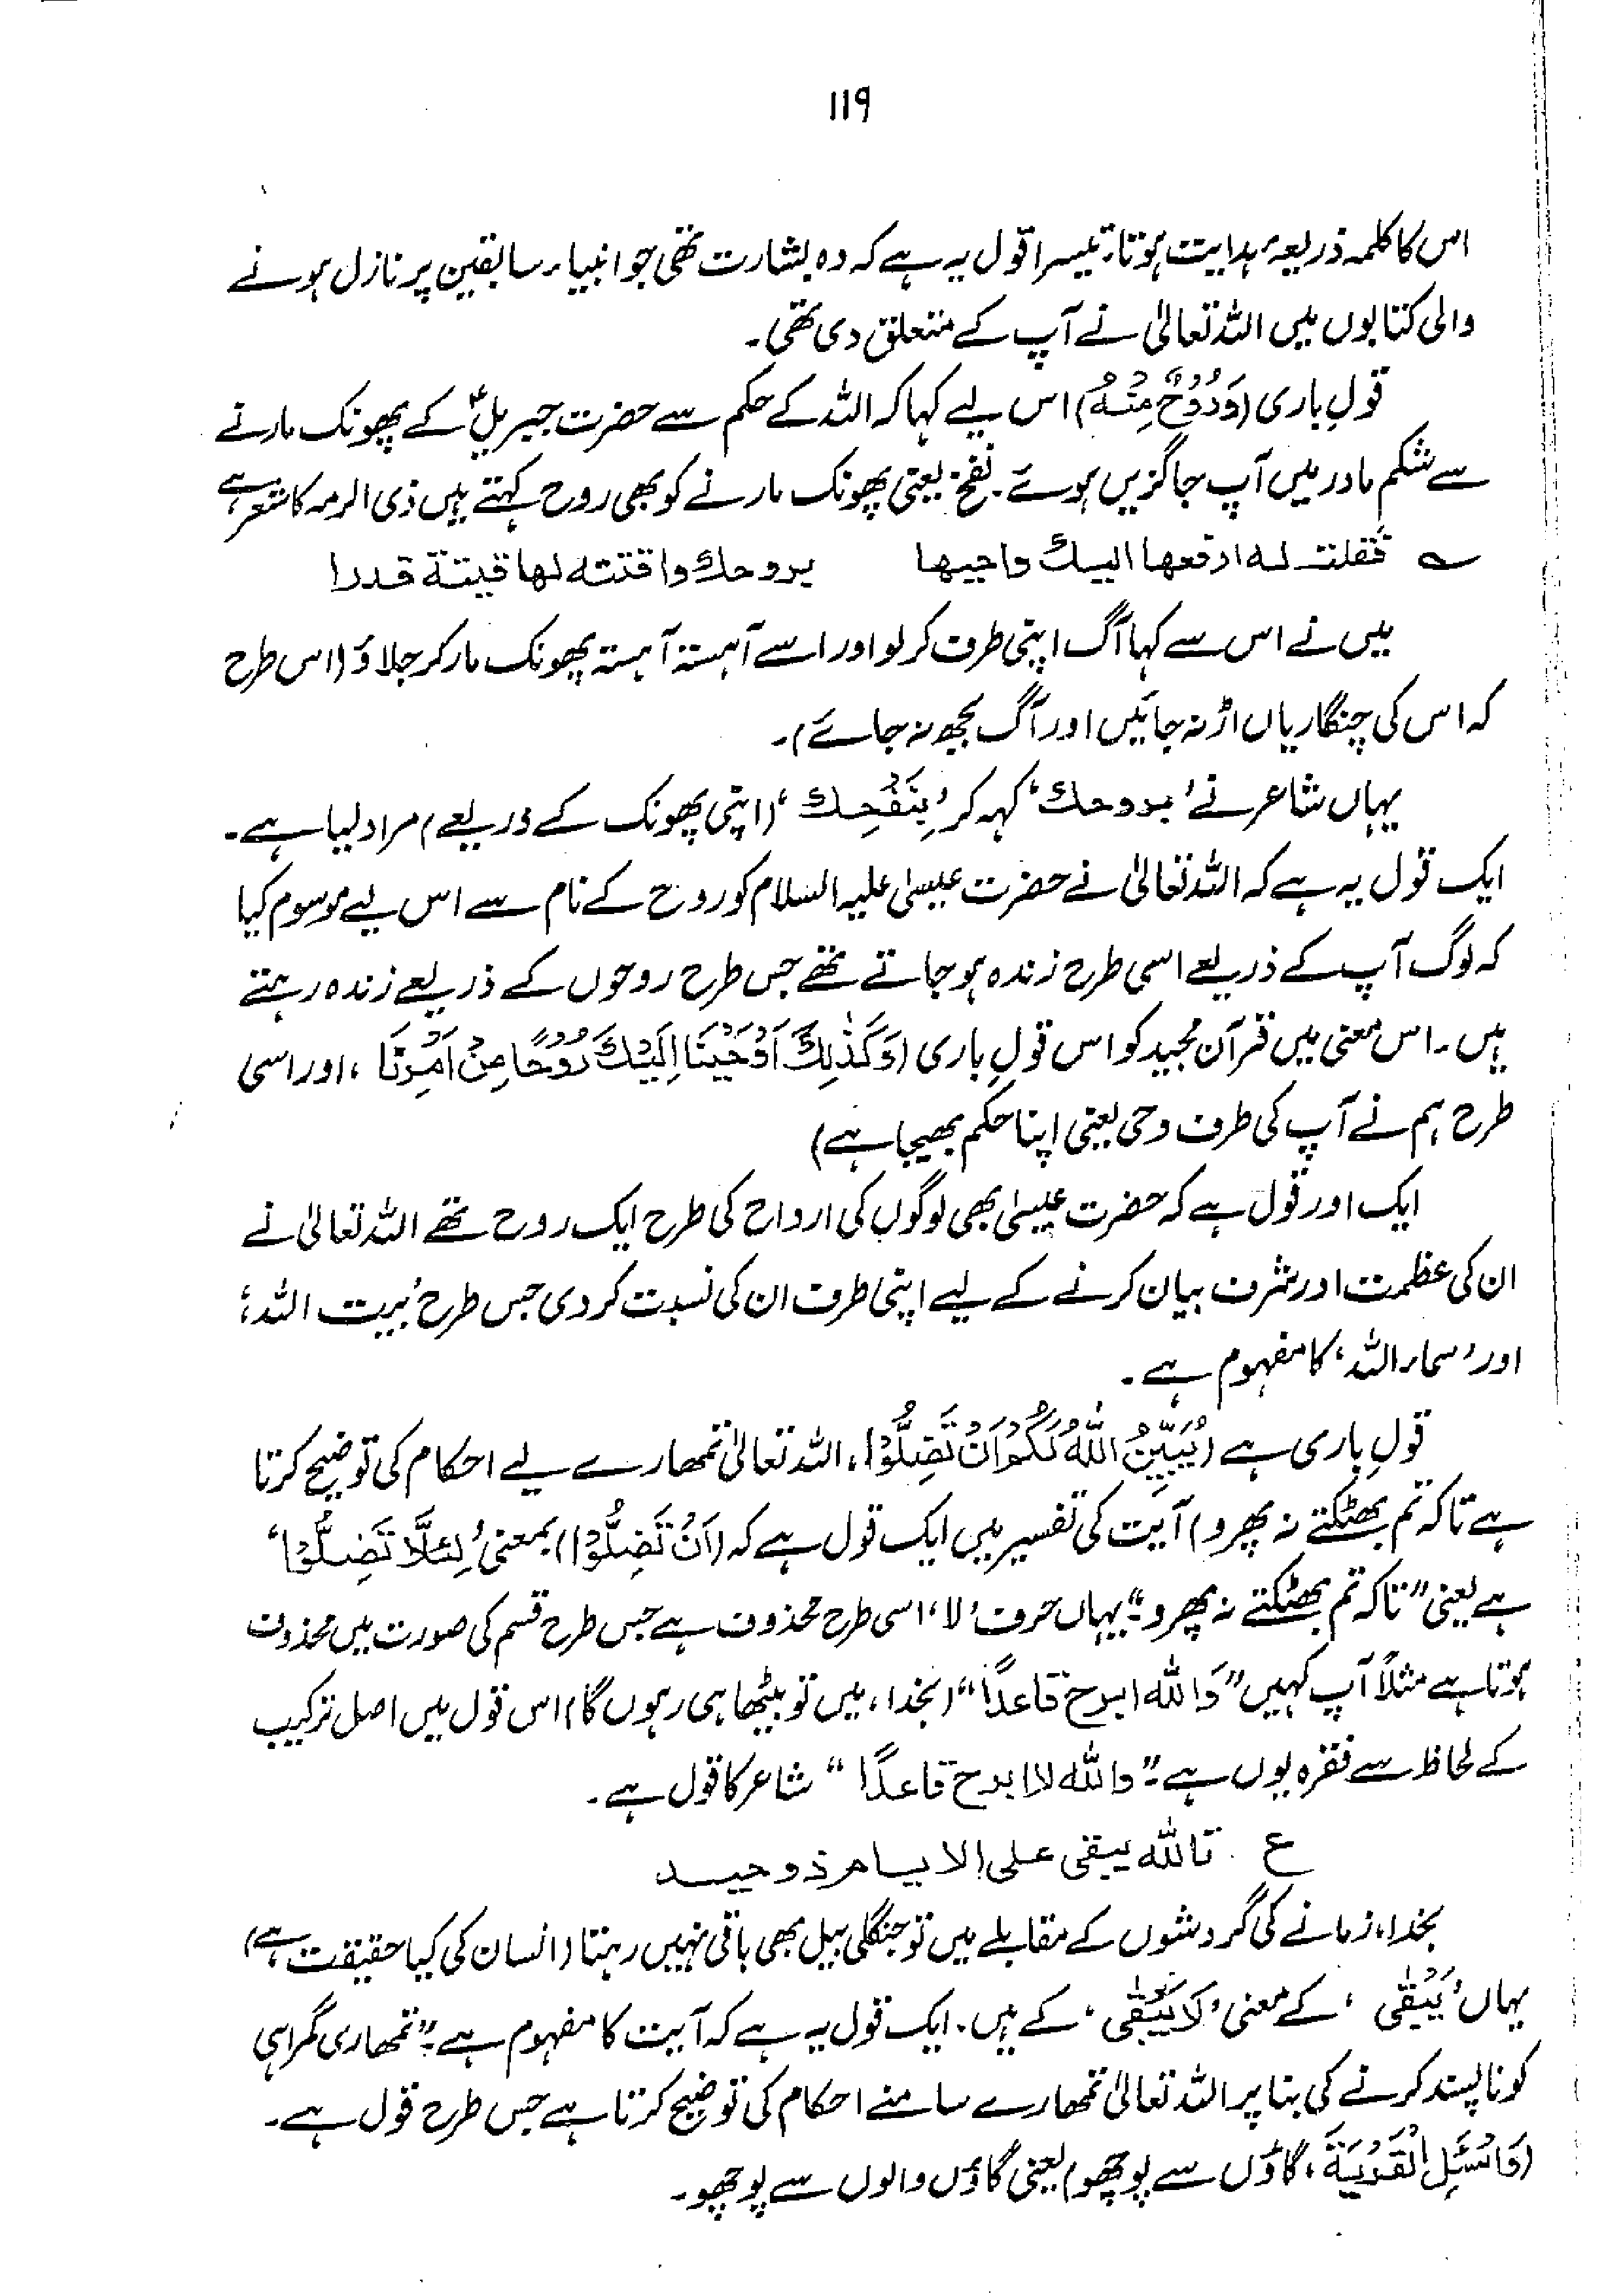 ۱۱۹
اس کا کلمہ ذریعۂ ہدایت ہوتا، تیسرا قول یہ ہے کہ وہ بشارت تھی جو انبیاء سابقین پر نازل ہونے
والی کتابوں میں اللہ تعالیٰ نے آپ کے متعلق دی تھی۔
قولِ باری (وَرُوْحٌ مِنْهُ) اس لیے کہا کہ اللہ کے حکم سے حضرت جبریلؑ کے پھونک مارنے
سے شکم مادر میں آپ جاگزیں ہوئے۔ نفخ یعنی پھونک مارنے کو بھی روح کہتے ہیں ذی الرمہ کا شعر ہے
؎ فقلت له ارفعها اليك واحيها بروحك واقتته لها قيتة قدرا
میں نے اس سے کہا آگ اپنی طرف کر لو اور اسے آہستہ آہستہ پھونک مار کر جلاؤ (اس طرح
کہ اس کی چنگاریاں اڑ نہ جائیں اور آگ بجھ نہ جائے)۔
یہاں شاعر نے 'بروحك' کہہ کر 'بِنَفْخِك' (اپنی پھونک کے ذریعے) مراد لیا ہے۔
ایک قول یہ ہے کہ اللہ تعالیٰ نے حضرت عیسیٰ علیہ السلام کو روح کے نام سے اس لیے موسوم کیا
کہ لوگ آپ کے ذریعے اسی طرح زندہ ہو جاتے تھے جس طرح روحوں کے ذریعے زندہ رہتے
ہیں۔ اس معنی میں قرآن مجید کو اس قولِ باری (وَكَذٰلِكَ اَوْحَيْنَا اِلَيْكَ رُوْحًا مِنْ اَمْرِنَا، اور اسی
طرح ہم نے آپ کی طرف وحی یعنی اپنا حکم بھیجا ہے)
ایک اور قول ہے کہ حضرت عیسیٰ بھی لوگوں کی ارواح کی طرح ایک روح تھے اللہ تعالیٰ نے
ان کی عظمت اور شرف بیان کرنے کے لیے اپنی طرف ان کی نسبت کر دی جس طرح 'بیت اللہ'،
اور 'سماء اللہ' کا مفہوم ہے۔
قولِ باری ہے (يُبَيِّنُ اللّٰهُ لَكُمْ اَنْ تَضِلُّوْا، اللہ تعالیٰ تمھارے لیے احکام کی توضیح کرتا
ہے تاکہ تم بھٹکتے نہ پھرو) آیت کی تفسیر میں ایک قول ہے کہ (اَنْ تَضِلُّوْا) بمعنی 'لِئَلَّا تَضِلُّوْا'
ہے یعنی "تاکہ تم بھٹکتے نہ پھرو"۔ یہاں حرف 'لا' اسی طرح محذوف ہے جس طرح قسم کی صورت میں محذوف
ہوتا ہے مثلاً آپ کہیں "وَالله ابرح قاعدًا" (بخدا، میں تو بیٹھا ہی رہوں گا) اس قول میں اصل ترکیب
کے لحاظ سے فقرہ یوں ہے۔ "والله لا ابرح قاعدًا" شاعر کا قول ہے۔
ع تالله يبقى على الايام ذو حيد
بخدا، زمانے کی گردشوں کے مقابلے میں تو جنگلی بیل بھی باقی نہیں رہتا (انسان کی کیا حقیقت ہے)
یہاں 'يَبْقٰى' کے معنی 'لَا يَبْقٰى' کے ہیں۔ ایک قول یہ ہے کہ آیت کا مفہوم ہے "تمھاری گمراہی
کو ناپسند کرنے کی بنا پر اللہ تعالیٰ تمھارے سامنے احکام کی توضیح کرتا ہے جس طرح قول ہے۔
(وَاسْئَلِ الْقَرْيَةَ، گاؤں سے پوچھو) یعنی گاؤں والوں سے پوچھو۔